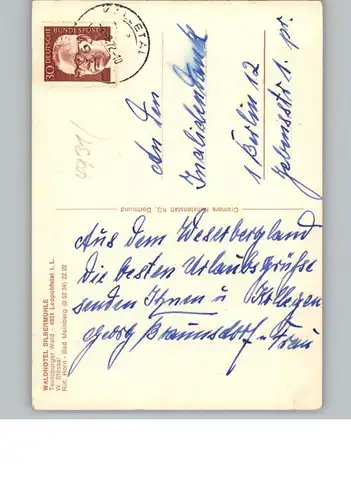 30
DEUTSCHE
BUNDESPOST
An den
Invalidendank
1 Berlin 12
Cramers Kunstanstalt KG, Dortmund
Aus dem Weserbergland
die besten Urlaubsgrüße
senden Ihnen u Kollegen
Georg Braunsdorf u Frau
WALDHOTEL SILBERMÜHLE
Teutoburger Wald - 4931 Leopoldstal i. L.
W. Glössel
Ruf: Horn - Bad Meinberg (0 52 34) 22 22